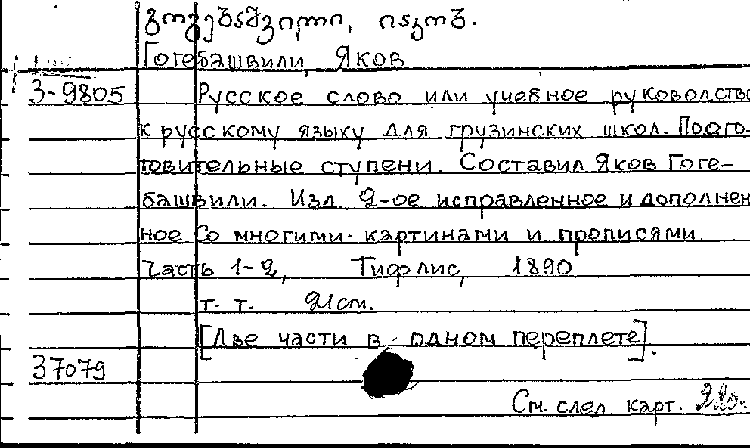 გოგებაშვილი, იაკობ.
Гогебашвили, Яков
3-9805 Русское слово или учебное руководство
к русскому языку для грузинских школ. Подго-
товительные ступени. Составил Яков Гоге-
башвили. Изд. 2-ое исправленное и дополнен
ное со многими картинами и прописями.
Часть 1-2, Тифлис, 1890
т. т. 21 см.
[Две части в одном переплете].
37079
См. след карт.